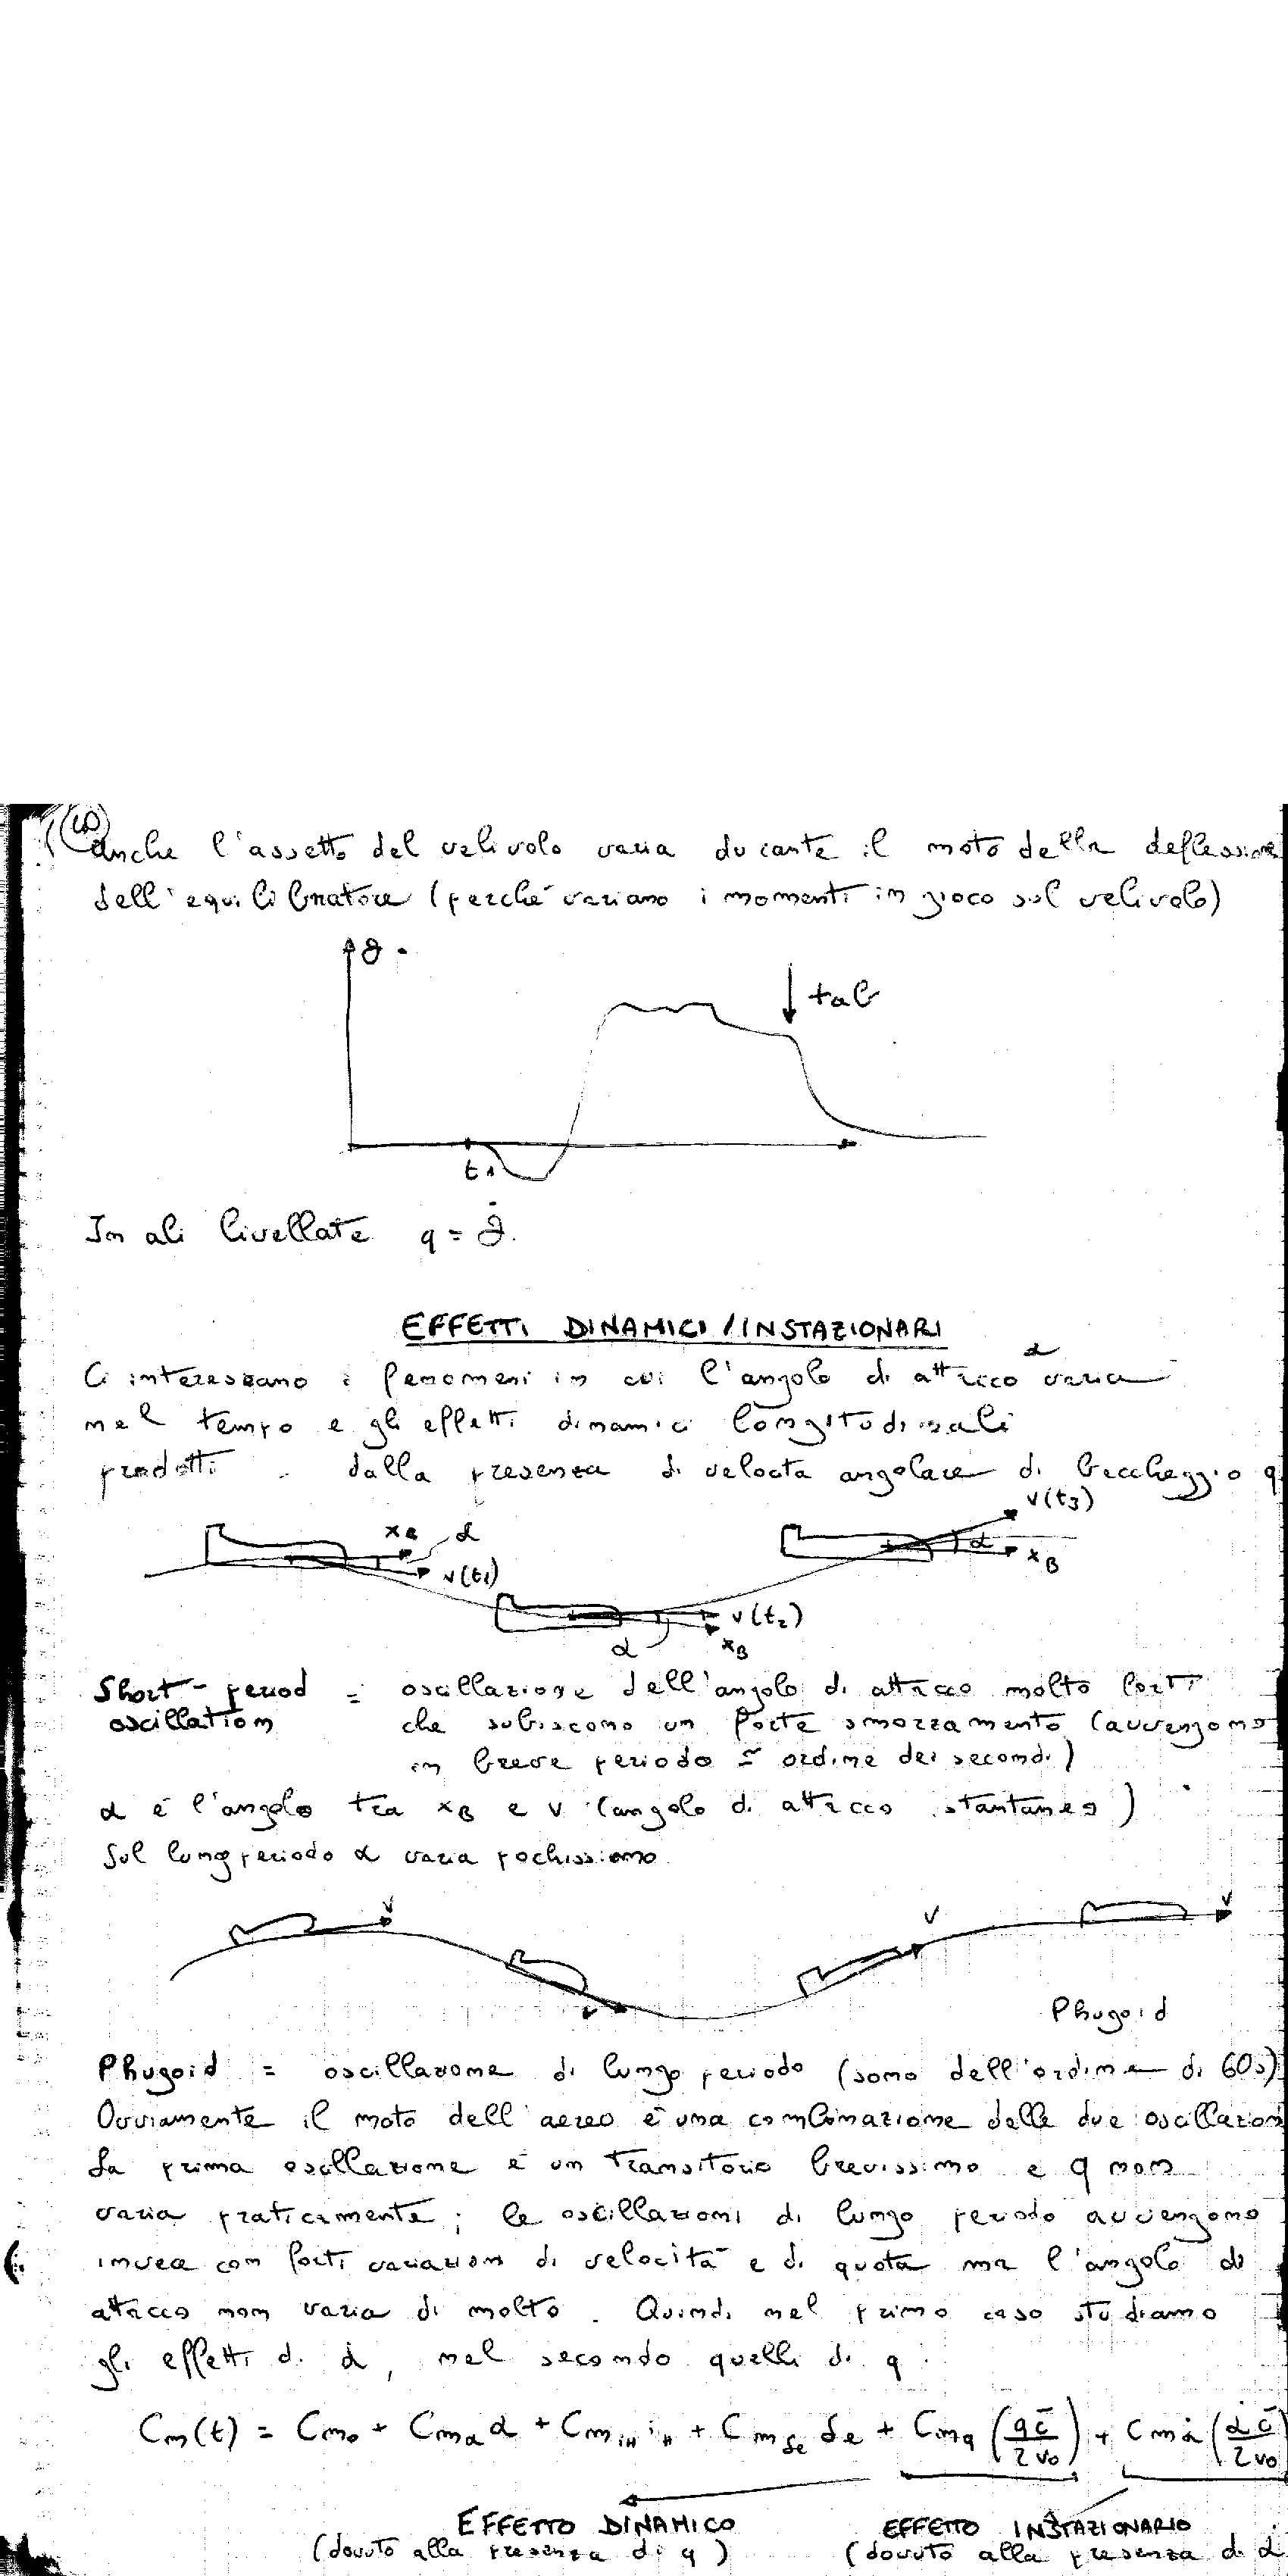 Anche l'assetto del velivolo varia durante il moto della deflessione
dell'equilibratore (perché variano i momenti in gioco sul velivolo)
ϑ
tab
t₁
In ali livellate q = ϑ̇.
EFFETTI DINAMICI / INSTAZIONARI
Ci interessano i fenomeni in cui l'angolo di attacco α varia
nel tempo e gli effetti dinamici longitudinali
prodotti dalla presenza di velocità angolare di beccheggio q
x_B α v(t₁)
v(t₂) α x_B
v(t₃) α x_B
Short-period = oscillazione dell'angolo di attacco molto forti
oscillation che subiscono un forte smorzamento (avvengono
in breve periodo = ordine dei secondi)
α è l'angolo tra x_B e v (angolo di attacco istantaneo)
Sul lungo periodo α varia pochissimo
V V V V
Phugoid
Phugoid = oscillazione di lungo periodo (sono dell'ordine di 60s)
Ovviamente il moto dell'aereo è una combinazione delle due oscillazioni
La prima oscillazione è un transitorio brevissimo e q non
varia praticamente; le oscillazioni di lungo periodo avvengono
invece con forti variazioni di velocità e di quota ma l'angolo di
attacco non varia di molto. Quindi nel primo caso studiamo
gli effetti di α̇, nel secondo quelli di q.
Cm(t) = Cm₀ + Cm_α α + Cm_iH i_H + Cm_δe δe + Cm_q (q c̄ / 2V₀) + Cm_α̇ (α̇ c̄ / 2V₀
EFFETTO DINAMICO EFFETTO INSTAZIONARIO
(dovuto alla presenza di q) (dovuto alla presenza di α̇